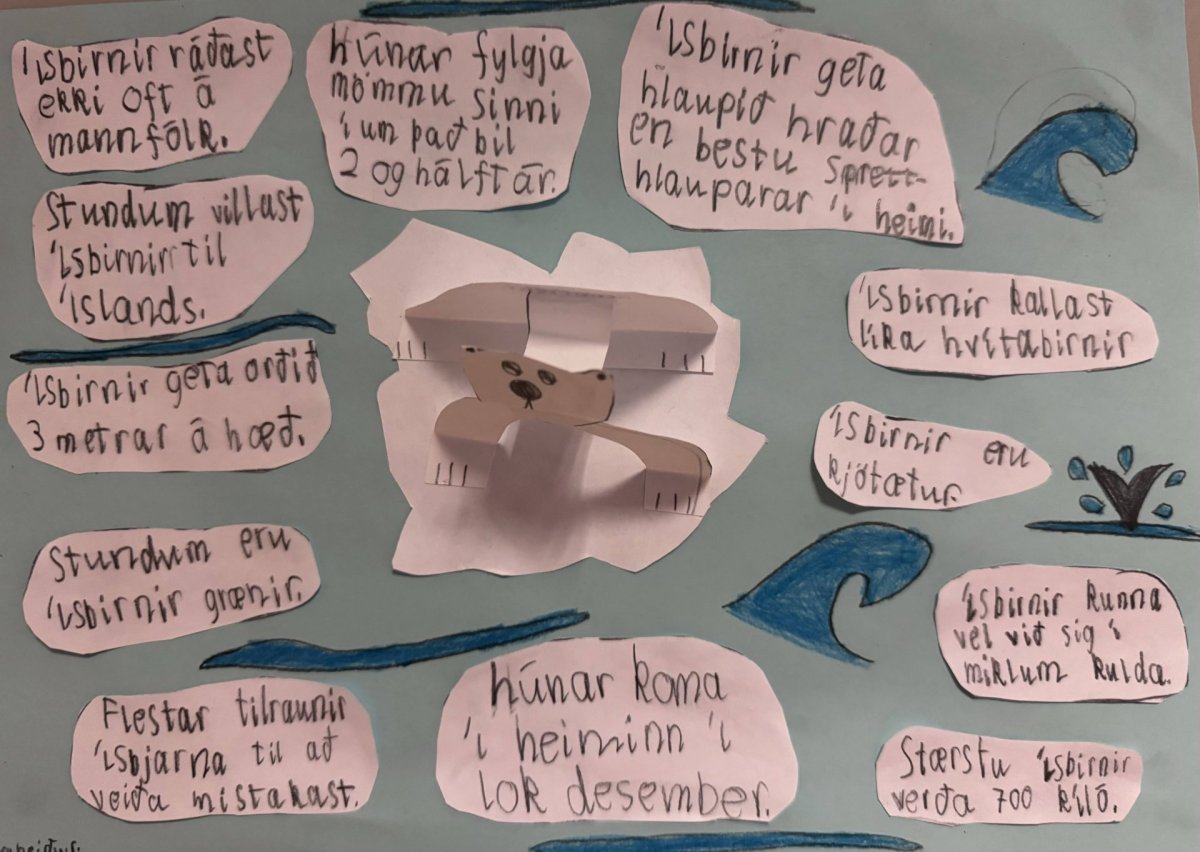 Ísbirnir ráðast
ekki oft á
mannfólk.
Húnar fylgja
mömmu sinni
í um það bil
2 og hálft ár.
Ísbirnir geta
hlaupið hraðar
en bestu sprett-
hlauparar í heimi.
Stundum villast
ísbirnir til
Íslands.
Ísbirnir kallast
líka hvítabirnir
Ísbirnir geta orðið
3 metrar á hæð.
Ísbirnir eru
kjötætur.
Stundum eru
ísbirnir grænir.
Ísbirnir kunna
vel við sig í
miklum kulda.
Flestar tilraunir
ísbjarna til að
veiða mistakast.
Húnar koma
í heiminn í
lok desember.
Stærstu ísbirnir
verða 700 kíló.